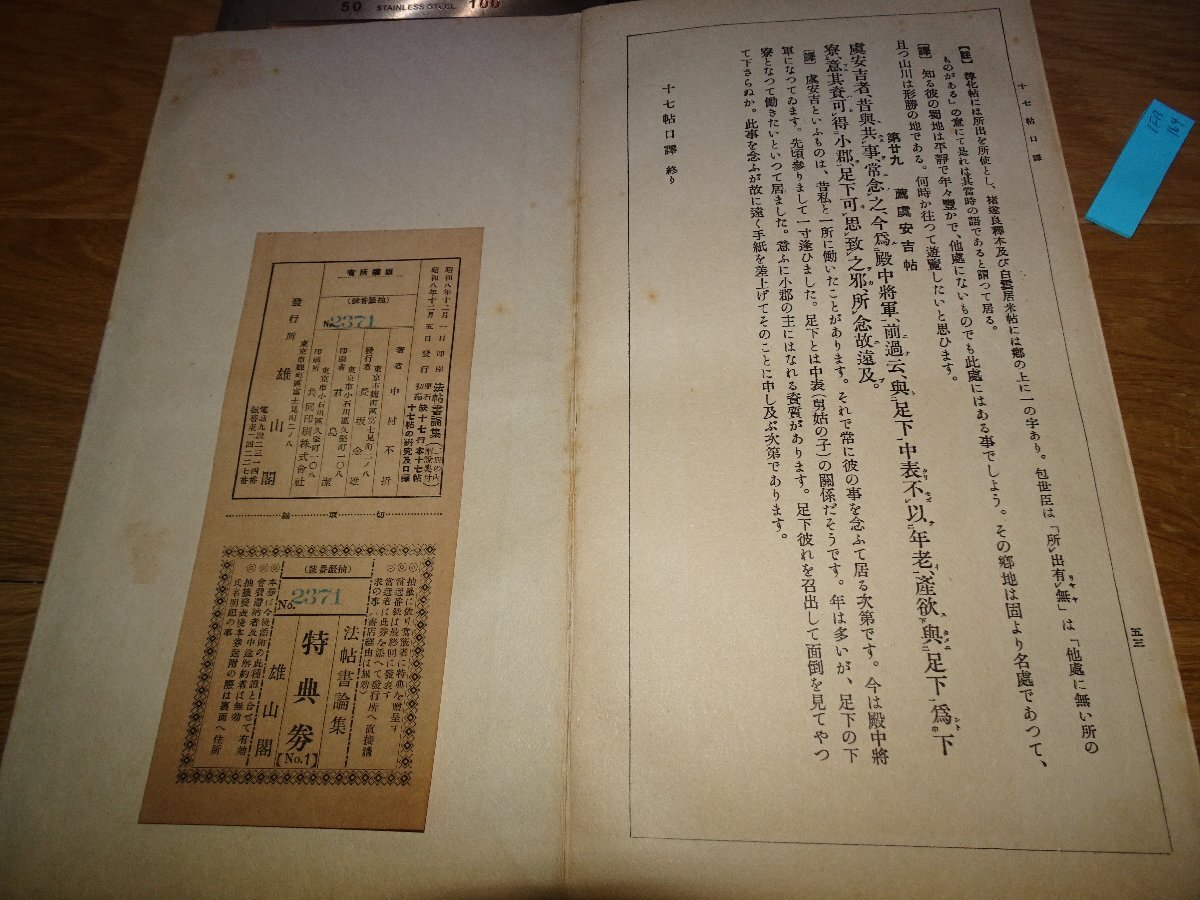 50 STAINLESS STEEL 100
十七帖口譯
五三
【註】 淳化帖には所出を所使とし、褚遂良釋本及び白雲居米帖には鄕の上に一の字あり。包世臣は「所レ出有レ無」は「他處に無い所の
ものがある」の意にて是れは其當時の語であると謂つて居る。
【譯】 知る彼の蜀地は平靜で年々豐かで、他處にないものでも此處にはある事でしよう。その鄕地は固より名處であつて、
且つ山川は形勝の地である。何時か往つて遊覽したいと思ひます。
第廿九 薦虞安吉帖
虞安吉者、昔與共レ事、常念レ之、今爲二殿中將軍一、前過云、與二足下一中表、不下以二年老一、產欲與二足下一爲中下
寮上、意其資可レ得二小郡一、足下可三思致レ之邪、所レ念故遠及。
【譯】 虞安吉といふものは、昔私と一所に働いたことがあります。それで常に彼の事を念ふて居る次第です。今は殿中將
軍になつてゐます。先頃參りまして一寸逢ひました。足下とは中表(舅姑の子)の關係だそうです。年は多いが、足下の下
寮となつて働きたいといつて居ました。意ふに小郡の主にはなれる資質があります。足下彼れを召出して面倒を見てやつ
て下さらぬか。此事を念ふが故に遠く手紙を差上げてそのことに申し及ぶ次第であります。
十七帖口譯 終り
昭和八年十二月一日印刷
昭和八年十二月五日發行
法帖書論集
十七帖の硏究及口譯
版權所有
(抽籤番號)
No. 2371
著者 中村不折
東京市麴町區富士見町二ノ八
發行者 長坂金雄
東京市小石川區久堅町一〇八
印刷者 君島潔
東京市小石川區久堅町一〇八
印刷所 共同印刷株式會社
東京市麴町區富士見町二ノ八
發行所 雄山閣
切取線
(抽籤番號)
No. 2371
◎抽籤に依り當籤者に特典を贈呈す
◎當選番號は最終回に發表す
法帖書論集
特典券
【No.1】
雄山閣
氏名明記の事